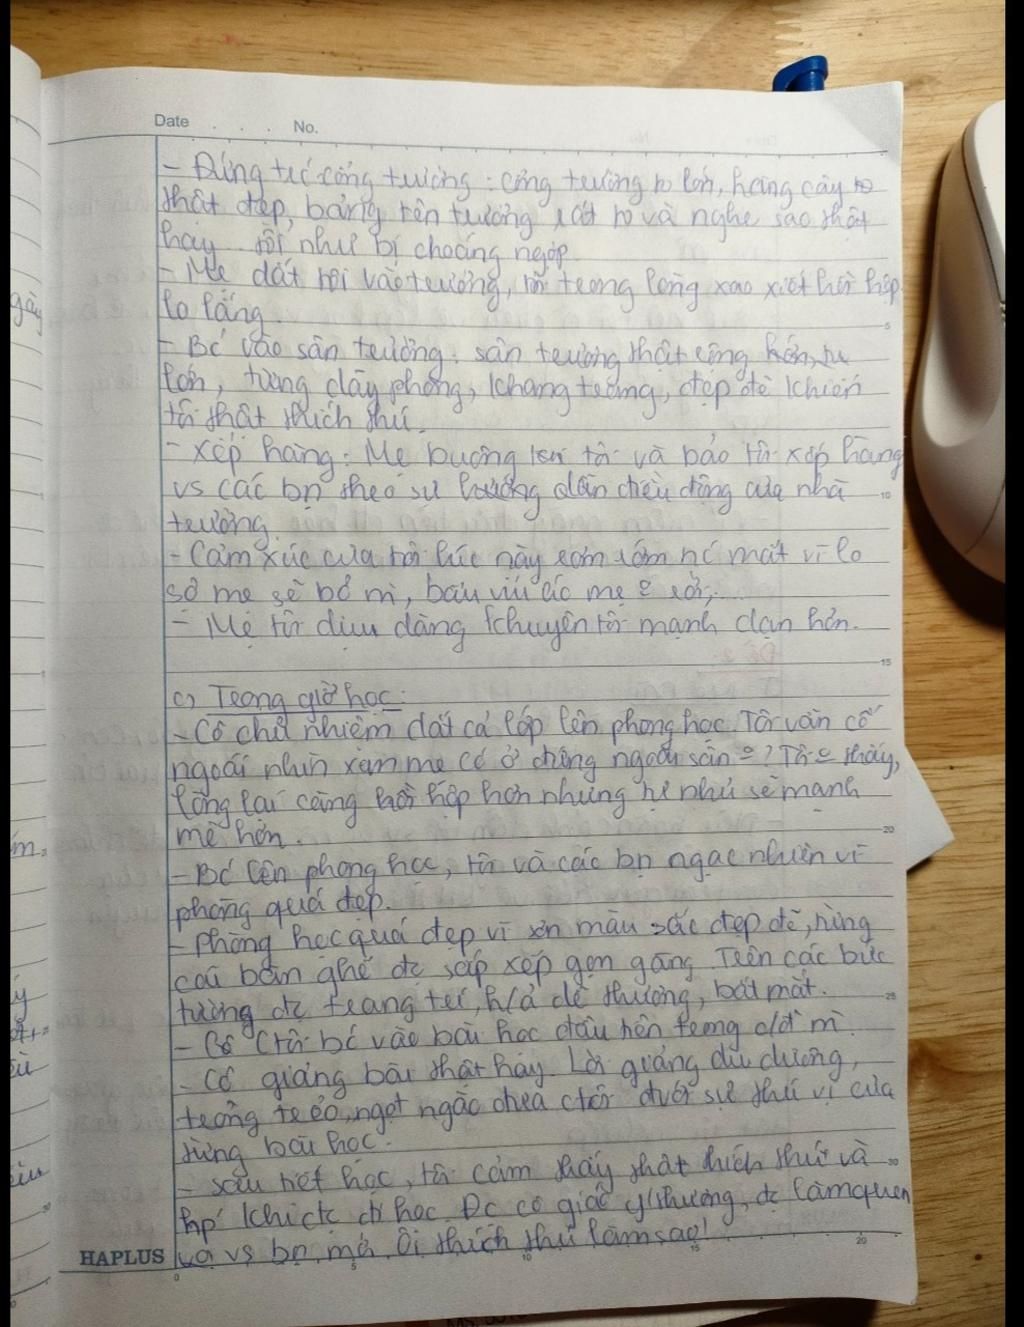 Date . . . No.
- Đứng trc cổng trường : cổng trường to lớn, hàng cây to
thật đẹp, bảng tên trường rất to và nghe sao thật
hay tôi như bị choáng ngợp.
- Mẹ dắt tôi vào trường, tôi trong lòng xao xuyến hồi hộp
lo lắng.
- Bc vào sân trường : sân trường thật rộng
lớn, từng dãy phòng, khang trang, đẹp đẽ khiến
tôi thật thích thú.
- Xếp hàng : Mẹ buông tôi và bảo tôi xếp hàng
vs các bn theo sự hướng dẫn điều động của nhà
trường
- Cảm xúc của tôi lúc này rơm rớm nc mắt vì lo
sợ mẹ sẽ bỏ mì, bấu víu áo mẹ
- Mẹ tôi dịu dàng khuyên tôi mạnh dạn hơn.
c) Trong giờ học :
- Cô chủ nhiệm dắt cả lớp lên phòng học. Tôi vẫn cố
ngoái nhìn xem mẹ có ở đứng ngoài sân ? Tôi thấy,
lòng lại càng hồi hộp hơn nhưng tự nhủ sẽ mạnh
mẽ hơn.
- Bc lên phòng học, tôi và các bn ngạc nhiên vì
phòng quá đẹp.
- phòng học quá đẹp vì sơn màu sắc đẹp đẽ, từng
cái bàn ghế đc sắp xếp gọn gàng Trên các bức
tường đc trang trí, h/ả dễ thương, bắt mắt.
- Cô tôi bc vào bài học đầu tiên trong c/đ mì.
- Cô giảng bài thật hay. Lời giảng dịu dương,
trong trẻo, ngọt ngào đưa tôi đến sự thú vị của
từng bài học.
- sau tiết học, tôi cảm thấy thật thích thú và
khích đi học. Đc cô giáo y/thương, đc làm quen
vs bn mới. Ôi thích thú làm sao!
HAPLUS